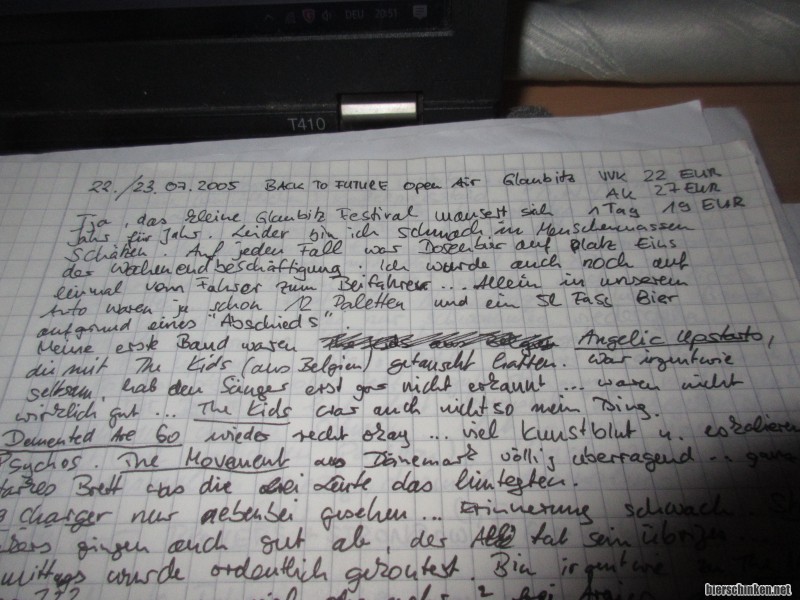 DEU 20:51
T410
22./23.07.2005 BACK TO FUTURE OPEN AIR Glaubitz VVK 22 EUR
AK 27 EUR
1 Tag 19 EUR
Tja, das kleine Glaubitz Festival mausert sich
Jahr für Jahr. Leider bin ich schwach in Menschenmassen
Schätzen. Auf jeden Fall war Dosenbier auf Platz Eins
der Wochenendbeschäftigung. Ich wurde auch noch auf
einmal vom Fahrer zum Beifahrer... Allein in unserem
Auto waren ja schon 12 Paletten und ein 5l Fass Bier
aufgrund eines "Abschieds"
Meine erste Band waren Angelic Upstarts,
die mit The Kids (aus Belgien) getauscht hatten. War irgentwie
seltsam, hab den Sänger erst gar nicht erkannt... waren nicht
wirklich gut... The Kids war auch nicht so mein Ding.
Demented Are Go wieder recht okay... viel Kunstblut u.
Psychos. The Movement aus Dänemark völlig überragend...
Brett was die drei Leute das hinlegten.
Charger nur nebenbei gesehen... Erinnerung schwach.
gingen auch gut ab, der Alk tat sein Übriges
mittags wurde ordentlich gezontest. Bin irgentwie
???